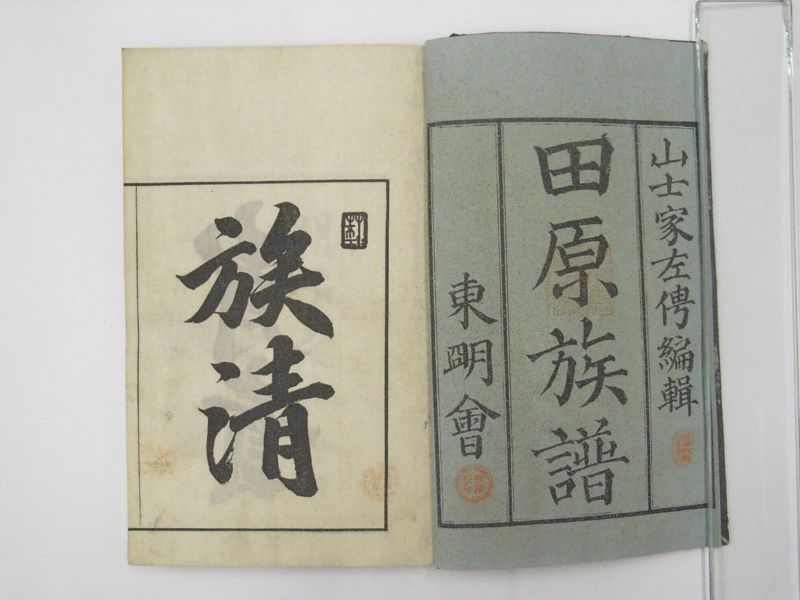 山士家左傳編輯
田原族譜
東明會
族清